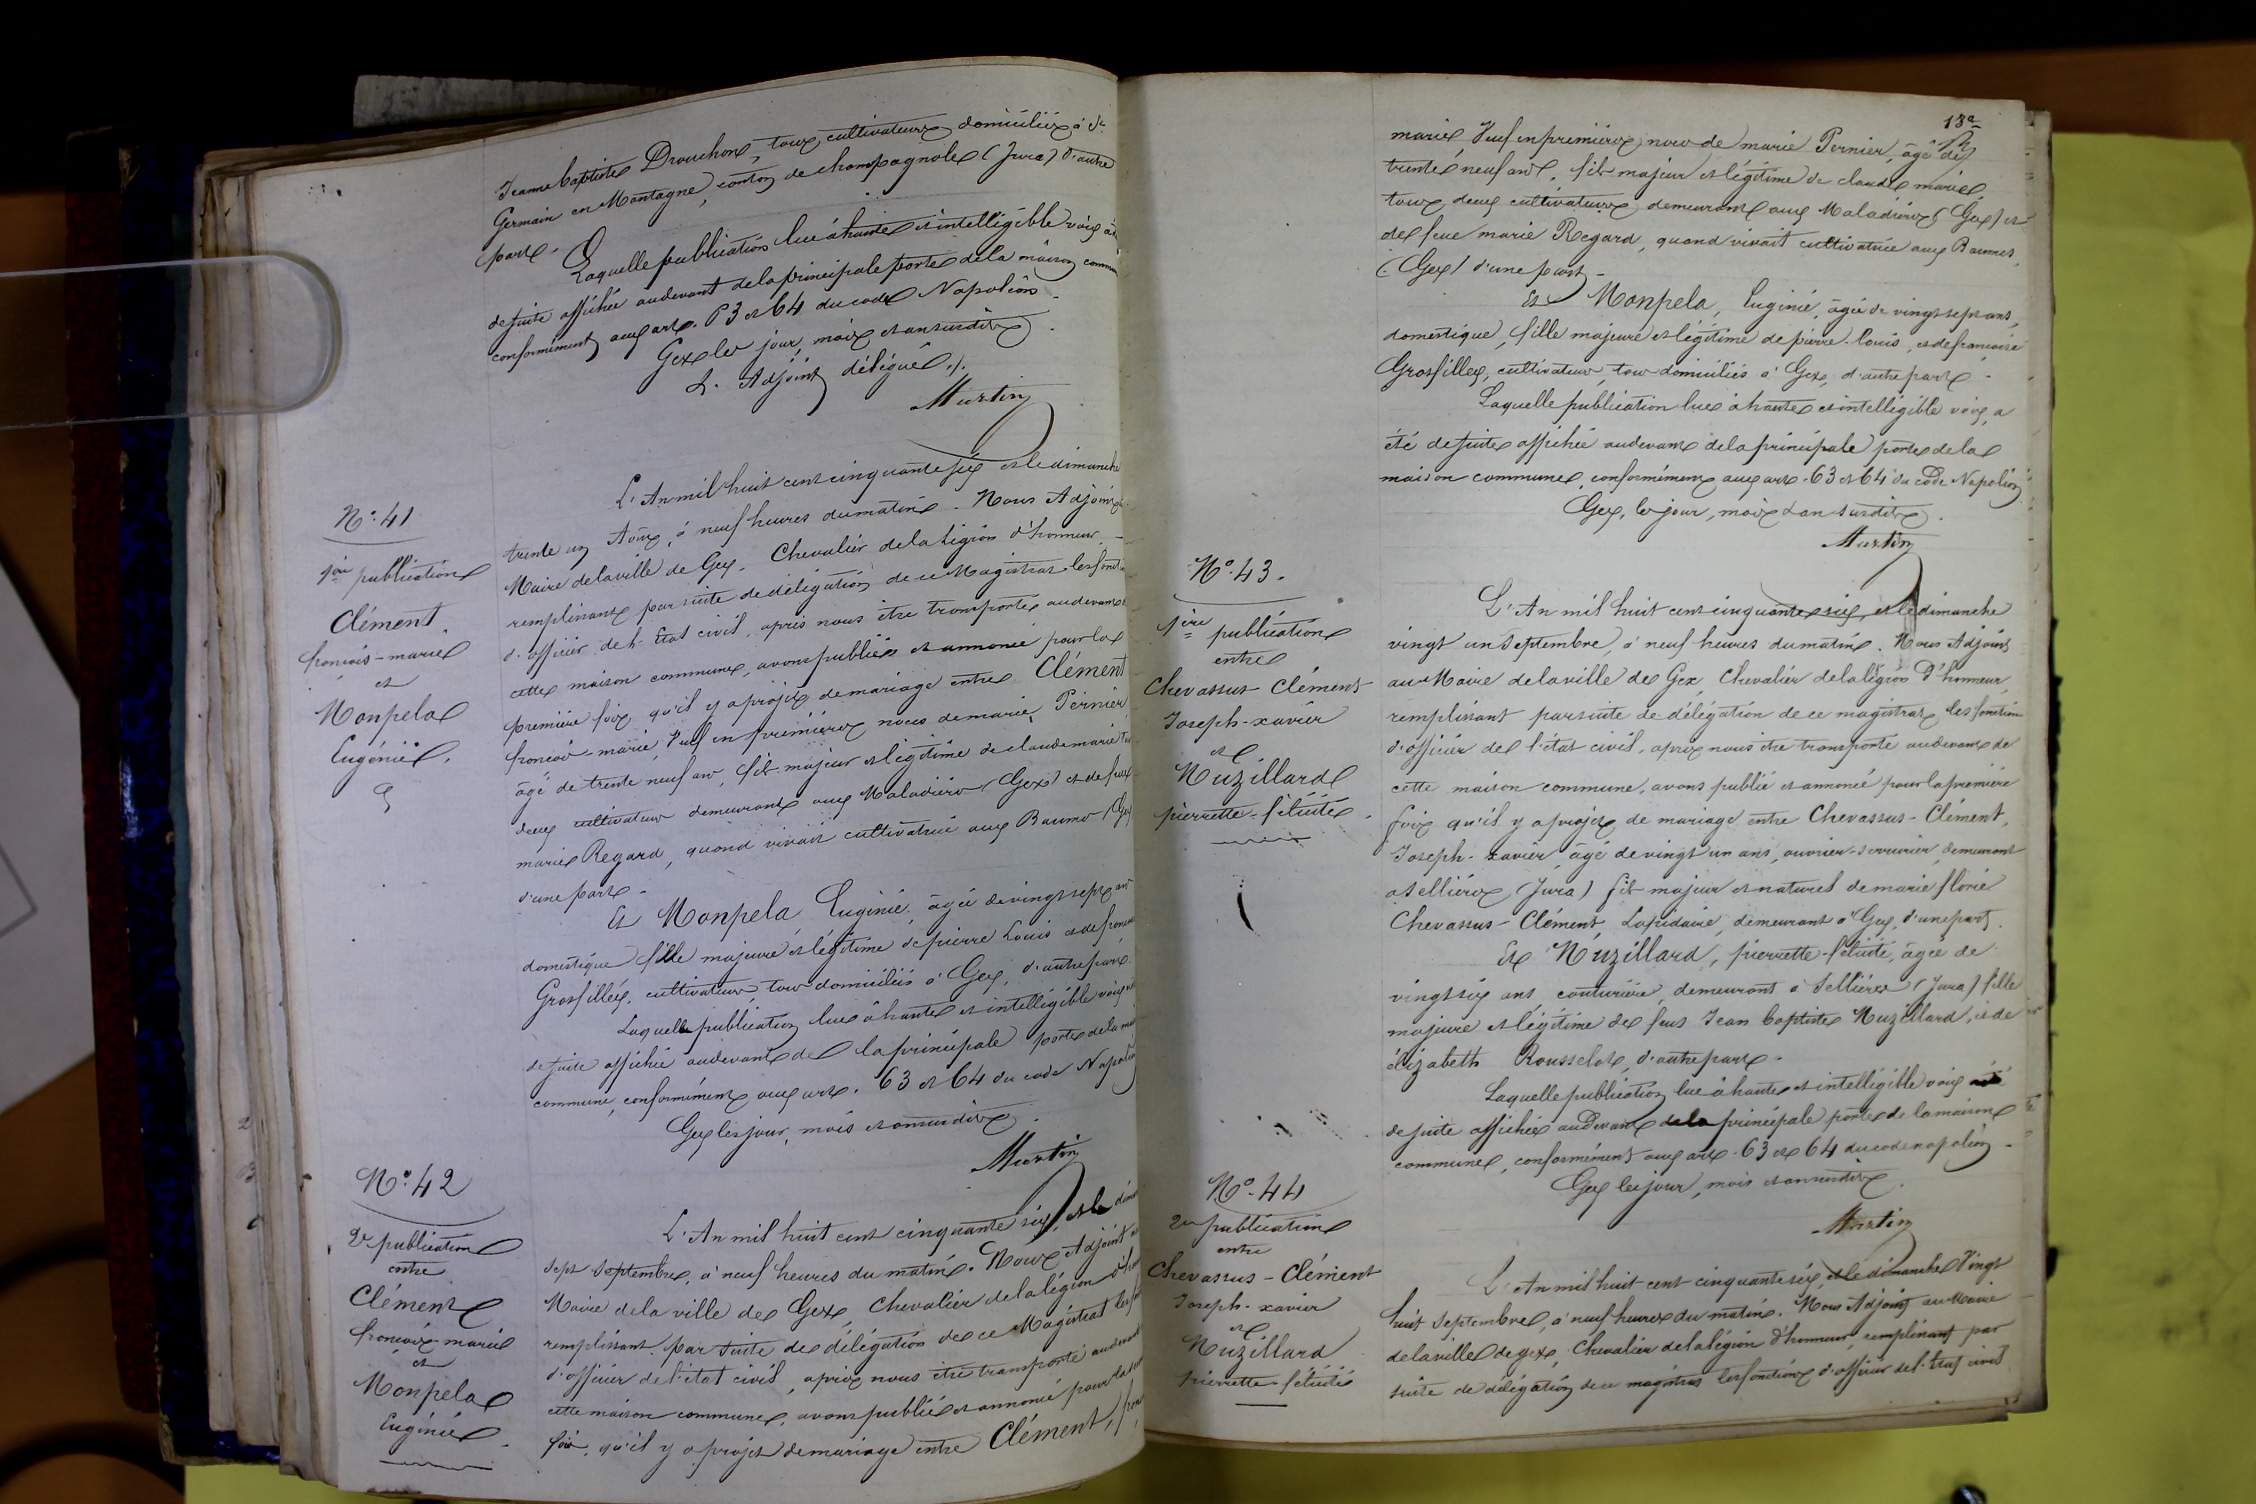 Jeanne baptiste Drouhon, tous cultivateurs domiciliés à St
Germain en Montagne, canton de champagnole (Jura) d'autre
part.
Laquelle publication lue à haute et intelligible voix a
de suite affichée audevant de la principale porte de la maison commu
conformément aux art. 63 et 64 du code Napoléon.
Gex les jour, mois et an susdits.
L'Adjoint délégué ./.
Martin
N° 41
1ère publication
Clément
françois-marie
et
Monpela
Eugénie.
L'An mil huit cent cinquante six et le dimanche
trente un Août, à neuf heures du matin. Nous Adjoint
Maire de la ville de Gex, Chevalier de la légion d'honneur,
remplissant par suite de délégation de ce Magistrat les fonct
d'officier de l'Etat civil, après nous être transporté audevant
cette maison commune, avons publié et annoncé pour la
première fois qu'il y a projet de mariage entre Clément
françois-marie, Veuf en premières noces de marie Pernier
âgé de trente neuf ans, fils majeur et légitime de claude marie
deux cultivateurs demeurant aux Maladières (Gex) et de feue
marie Regard, quand vivait cultivatrice aux Baumes (Gex
d'une part.
Et Monpela Eugénie, âgée de vingt sept ans
domestique fille majeure et légitime de pierre Louis et de franc
Grosfilley, cultivateurs, tous domiciliés à Gex, d'autre part.
Laquelle publication lue à haute et intelligible voix
de suite affichée audevant de la principale porte de la mai
commune, conformément aux art. 63 et 64 du code Napoléon
Gex les jour, mois et an susdits.
Martin
N° 42
2e publication
entre
Clément
françois-marie
et
Monpela
Eugénie.
L'An mil huit cent cinquante six, et le dim
sept Septembre, à neuf heures du matin. Nous Adjoint
Maire de la ville de Gex, Chevalier de la légion d'hon
remplissant par suite de délégation de ce Magistrat les
d'officier de l'état civil, après nous être transporté audevant
cette maison commune, avons publié et annoncé pour la
fois, qu'il y a projet de mariage entre Clément, fran
13e
marie, Veuf en premières noces de marie Pernier, âgé de
trente neuf ans, fils majeur et légitime de claude marie,
tous deux cultivateurs demeurant aux Maladières (Gex) et
de feue marie Regard, quand vivait cultivatrice aux Baumes,
(Gex) d'une part.
Et Monpela, Eugénie, âgée de vingt sept ans,
domestique, fille majeure et légitime de pierre-Louis, et de françoise
Grosfilley, cultivateurs, tous domiciliés à Gex, d'autre part.
Laquelle publication lue à haute et intelligible voix, a
été de suite affichée audevant de la principale porte de la
maison commune, conformément aux art. 63 et 64 du Code Napoléon
Gex, les jour, mois & an susdits.
Martin
N° 43.
1ère publication
entre
Chevassus-Clément
Joseph-xavier
et
Nuzillard
pierrette-félicité.
L'An mil huit cent cinquante six, et le dimanche
vingt un Septembre, à neuf heures du matin. Nous Adjoint
au Maire de la ville de Gex, Chevalier de la légion d'honneur,
remplissant par suite de délégation de ce magistrat les fonctions
d'officier de l'état civil, après nous être transporté audevant de
cette maison commune, avons publié et annoncé pour la première
fois qu'il y a projet de mariage entre Chevassus-Clément,
Joseph-xavier, âgé de vingt un ans, ouvrier-serrurier, demeurant
à Sellières (Jura) fils majeur et naturel de marie florie
Chevassus-Clément, Lapidaire, demeurant à Gex, d'une part.
Et Nuzillard, pierrette-félicité, âgée de
vingt six ans, couturière, demeurant à Sellières (Jura) fille
majeure et légitime de feus Jean baptiste Nuzillard, et de
élizabeth Rousselot, d'autre part.
Laquelle publication lue à haute et intelligible voix a été
de suite affichée au Devant de la principale porte de la maison
commune, conformément aux art. 63 et 64 du code napoléon.
Gex les jour, mois et an susdits.
Martin
N° 44
2e publication
entre
Chevassus-Clément
Joseph-xavier
et
Nuzillard
pierrette-félicité
L'An mil huit cent cinquante six, et le dimanche Vingt
huit Septembre, à neuf heures du matin. Nous Adjoint au Maire
de la ville de gex, Chevalier de la légion d'honneur, remplissant par
suite de délégation de ce magistrat les fonctions d'officier de l'état civil